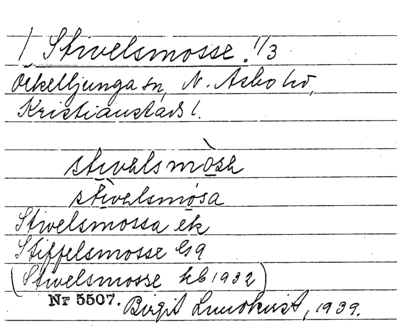 / Stivelsmosse. 1/3
Örkelljunga sn, N. Åsbo hd,
Kristianstads l.
stivalsmòsa
stivalsmósa
Stivelsmossa ek
Stiffelsmosse
(Stivelsmosse kb 1932)
Nr 5507. Birgit Lundkvist, 1939.